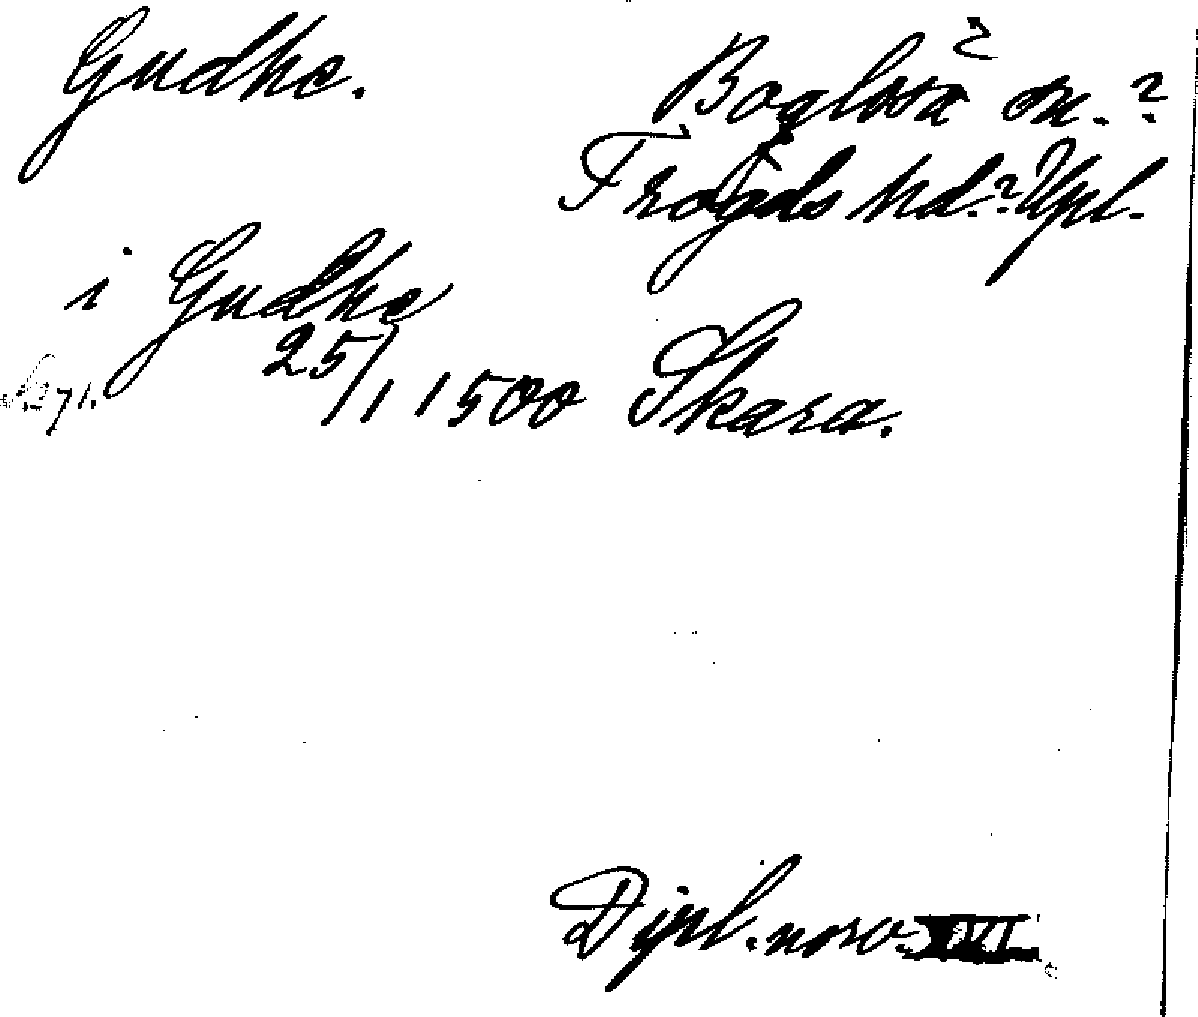 Gudhe.
Boglösa sn.?
Trögds hd.? Upl.
i Gudhe
25/1 1500 Skara.
s. 271.
Dipl. norv. XVI